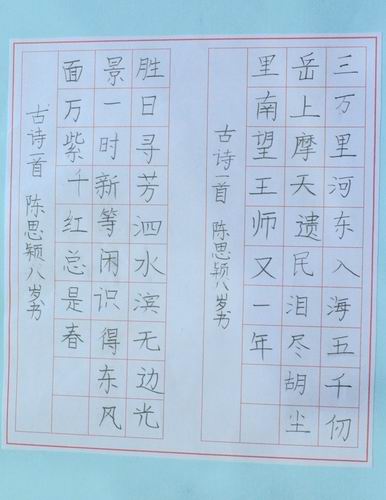 三万里河东入海五千仞
岳上摩天遗民泪尽胡尘
里南望王师又一年
古诗一首 陈思颖八岁书
胜日寻芳泗水滨无边光
景一时新等闲识得东风
面万紫千红总是春
古诗一首 陈思颖八岁书